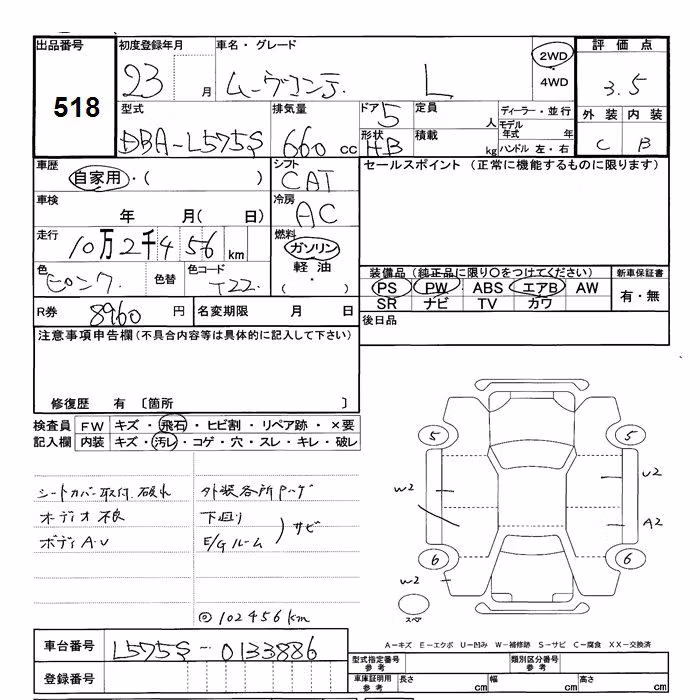 出品番号 初度登録年月 車名・グレード 2WD 評価点
518 23 月 ムーヴコンテ L ・4WD 3.5
型式 排気量 ドア 5 定員 人 ディーラー・並行 外装 内装
DBA-L575S 660 cc 形状 HB 積載 kg モデル年式 年 ハンドル 左・右 C B
車歴 シフト セールスポイント (正常に機能するものに限ります)
自家用・( ) CAT
車検 冷房
年 月( 日) AC
走行 燃料
10万2千456 km ガソリン
色 色替 色コード 軽油 装備品 (純正品に限り〇をつけてください) 新車保証書
ピンク T22 (・) PS PW ABS エアB AW 有・無
R券 8960 円 名変期限 月 日 SR ナビ TV カワ
注意事項申告欄 (不具合内容等は具体的に記入して下さい) 後日品
修復歴 有 〔箇所 〕
検査員 FW キズ・飛石・ヒビ割・リペア跡・×要
記入欄 内装 キズ・汚レ・コゲ・穴・スレ・キレ・破レ
5 5
シートカバー取付 破れ 外装各所
W2 U2
オーディオ不良 下廻り
A2
ボディA.U E/Gルーム サビ
6 6
W2
スペア
◎102456km
A-キズ E-エクボ U-凹み W-補修跡 S-サビ C-腐食 XX-交換済
車台番号 L575S-0133886 型式指定番号 参考 類別区分番号 参考
登録番号 車庫証明用 参考 長さ cm 幅 cm 高さ cm